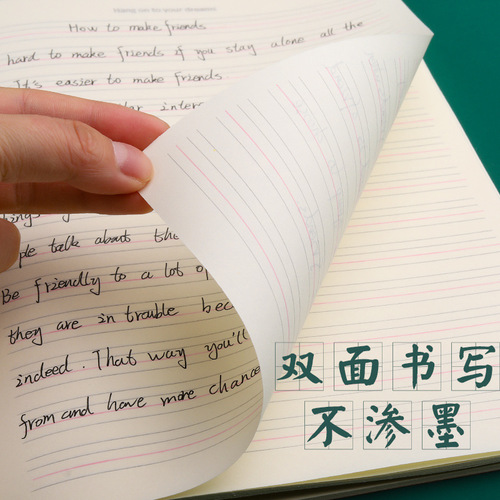 How to make friends
hard to make friends if you stay alone all the
It's easier to make friends
lar inter
talk about the
Be friendly to a lot o
they are in trouble bec
indeed. That way you'll
from and have more chance
双面书写
不渗墨